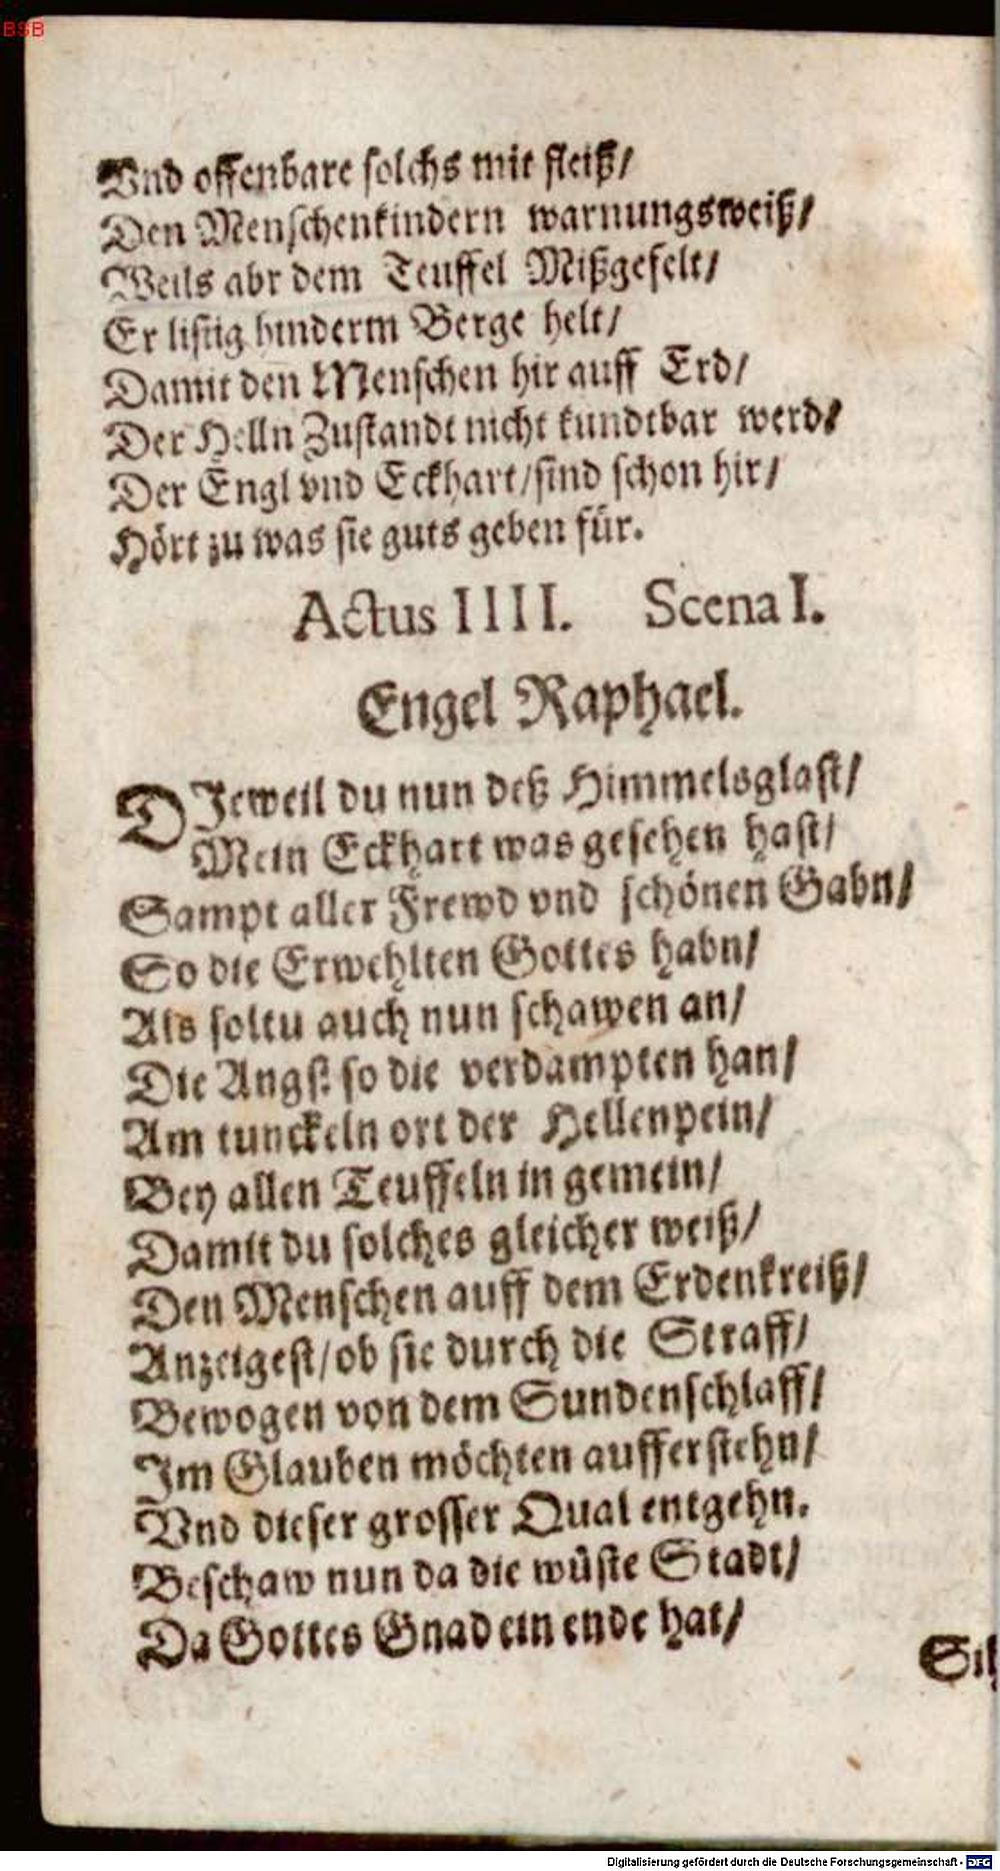 BSB
Vnd offenbare solchs mit fleiß/
Den Menschenkindern warnungsweiß/
Weils abr dem Teuffel Mißgefelt/
Er listig hinderm Berge helt/
Damit den Menschen hir auff Erd/
Der Helln Zustandt nicht kundtbar werd/
Der Engl vnd Eckhart/sind schon hir/
Hört zu was sie guts geben für.
Actus IIII. Scena I.
Engel Raphael.
DJeweil du nun deß Himmelsglast/
Mein Eckhart was gesehen hast/
Sampt aller Frewd vnd schönen Gabn/
So die Erwehlten Gottes habn/
Als soltu auch nun schawen an/
Die Angst so die verdampten han/
Am tunckeln ort der Hellenpein/
Bey allen Teuffeln in gemein/
Damit du solches gleicher weiß/
Den Menschen auff dem Erdenkreiß/
Anzeigest/ob sie durch die Straff/
Bewogen von dem Sundenschlaff/
Im Glauben möchten aufferstehn/
Vnd dieser grosser Qual entgehn.
Beschaw nun da die wüste Stadt/
Da Gottes Gnad ein ende hat/
Sih
Digitalisierung gefördert durch die Deutsche Forschungsgemeinschaft - DFG